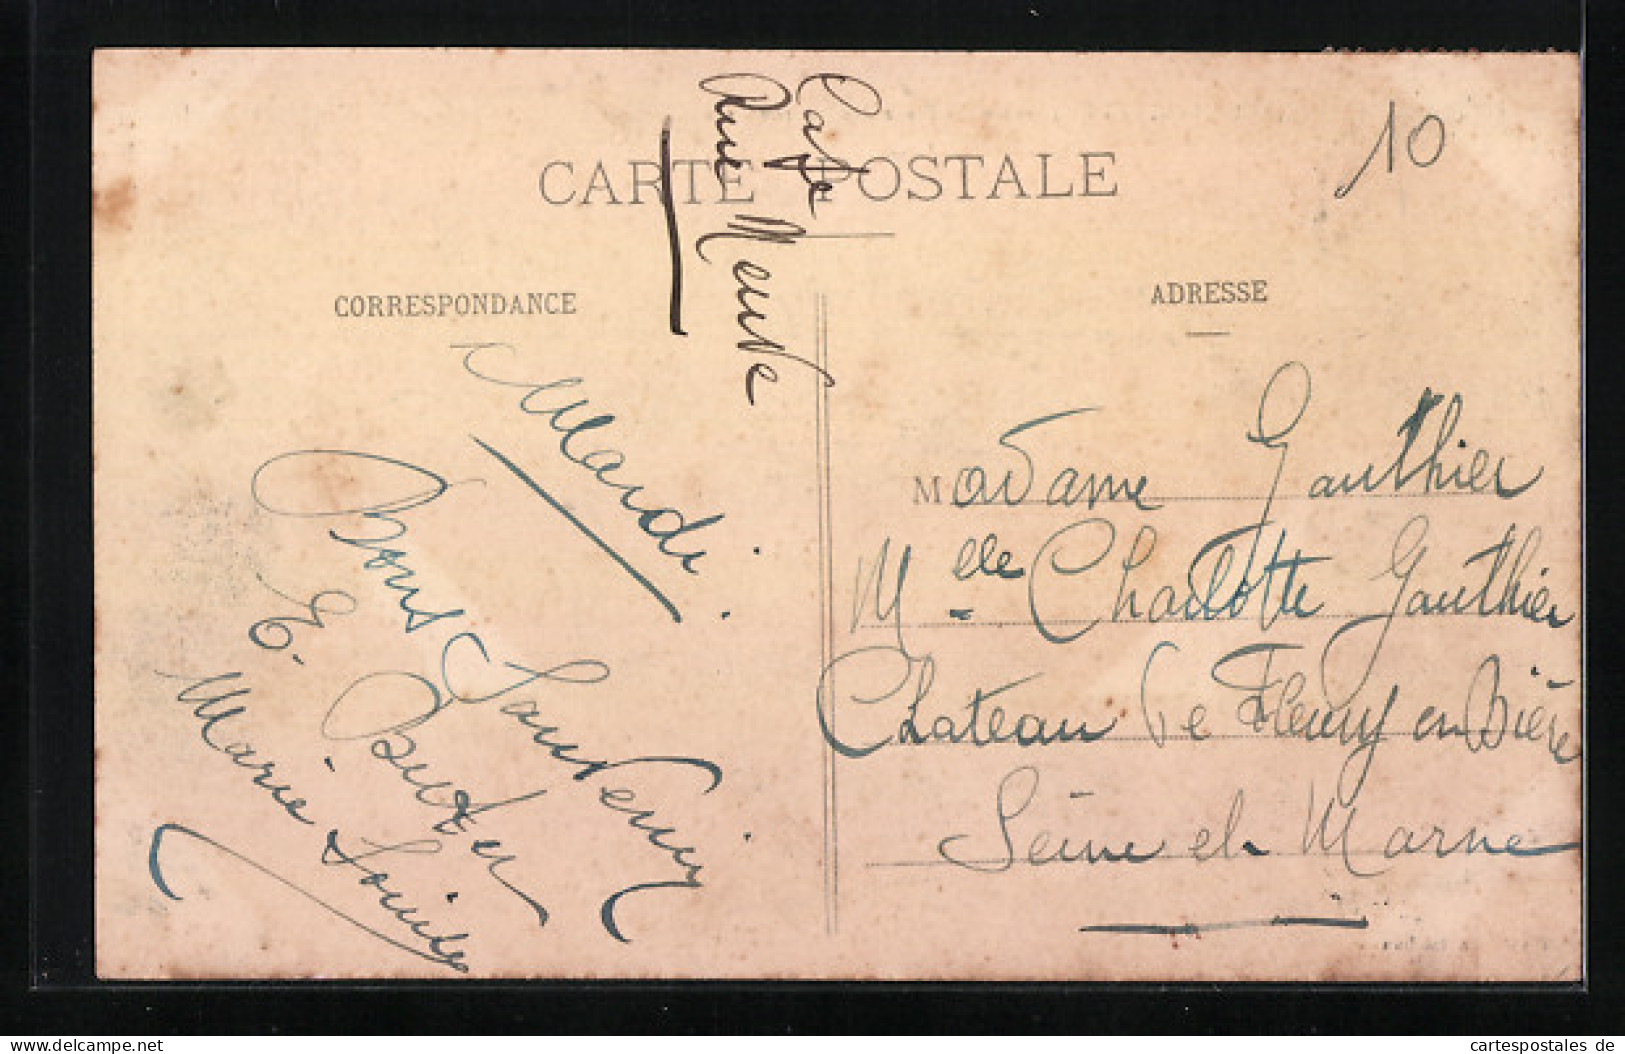 Café
Rue Neuve
10
CARTE POSTALE
CORRESPONDANCE
ADRESSE
Mardi
Bons Souvenirs
E.
Marie Louise
Madame Gauthier
Melle Charlotte Gauthier
Chateau de Fleury en Bière
Seine et Marne
delcampe.net
cartespostales de